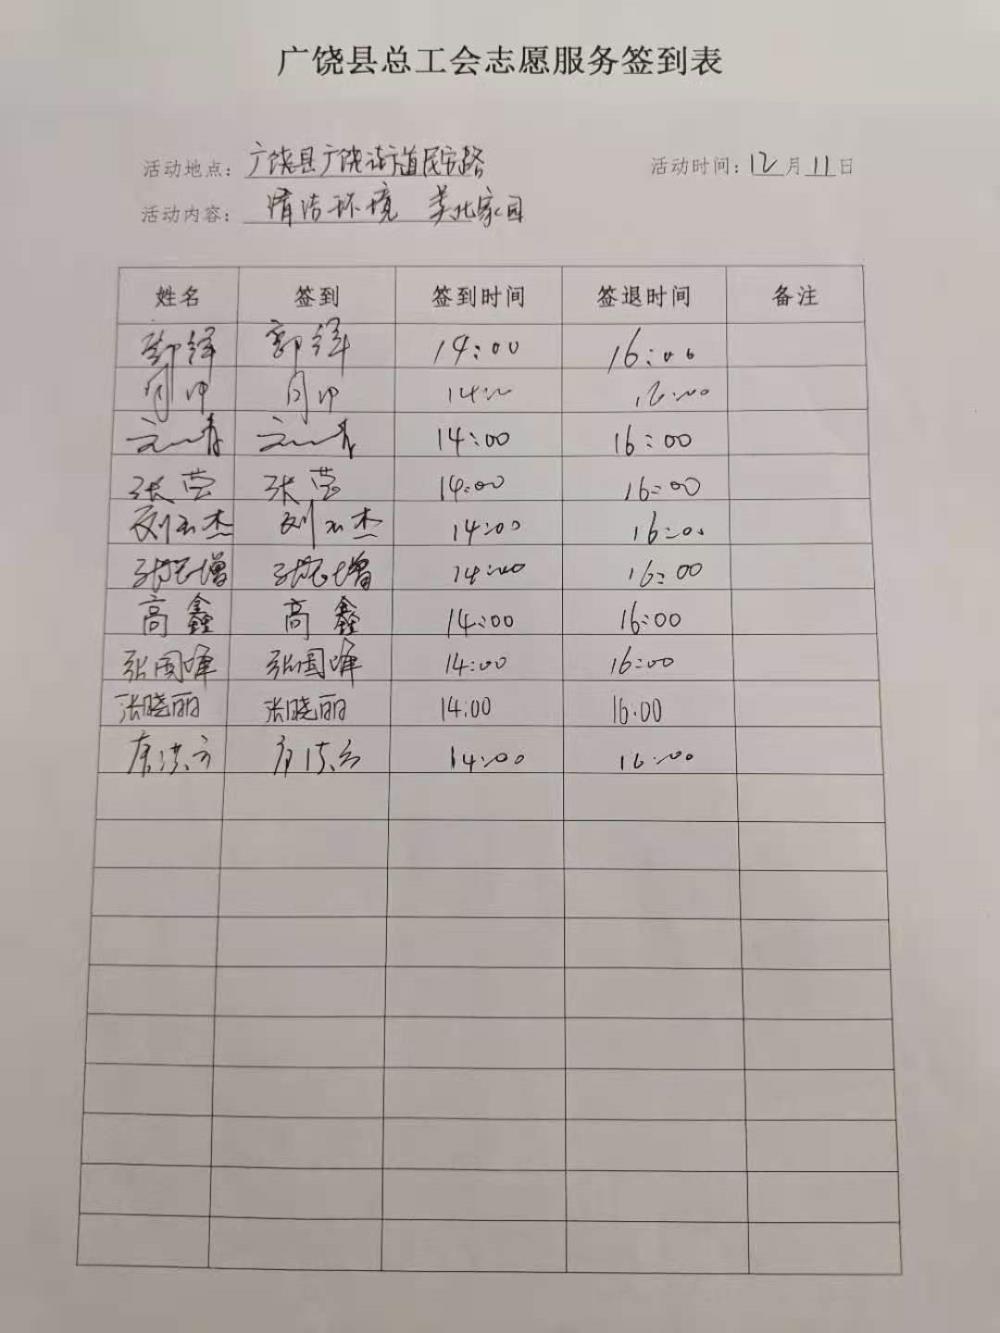 广饶县总工会志愿服务签到表
活动地点：广饶县广饶街道民安路 活动时间：12月11日
活动内容：清洁环境 美化家园
姓名 签到 签到时间 签退时间 备注
郭铎 郭铎 14:00 16:00
14:00 16:00
14:00 16:00
张莹 张莹 14:00 16:00
刘玉杰 刘玉杰 14:00 16:00
14:00 16:00
高鑫 高鑫 14:00 16:00
张国峰 张国峰 14:00 16:00
张晓丽 张晓丽 14:00 16:00
14:00 16:00